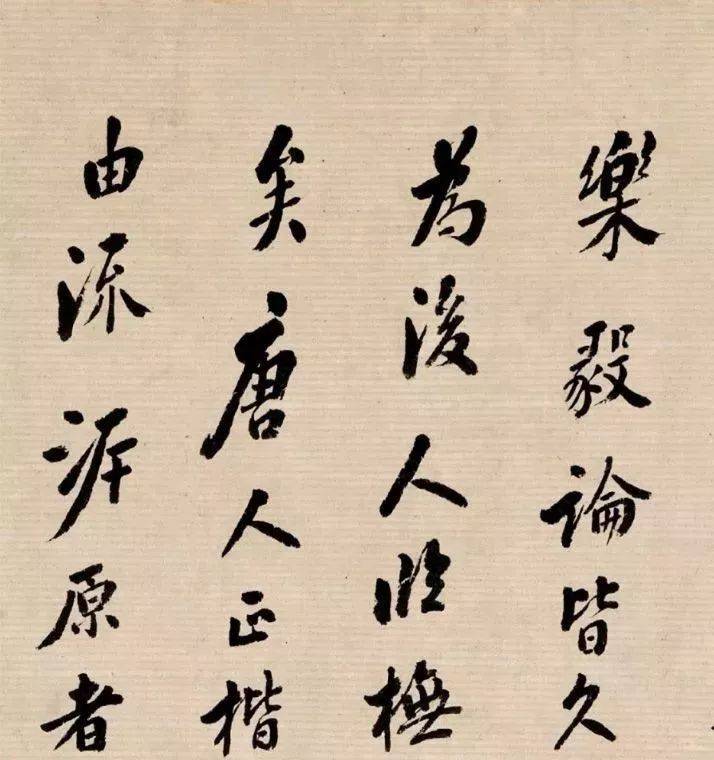 樂毅論皆久
為後人臨橅
矣唐人正楷
由流泝原者